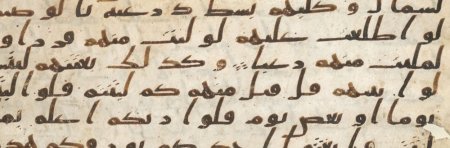 لشمال و كلبهم بسط ذرعيه بالوصيد
لو اطلعت عليهم لوليت منهم فرارا و
لملئت منهم رعبا وكذلك بعثنهم ليتسا
لوا بينهم قل قئل منهم كم لبثتم قلوا لبثنا
يوما او بعض يوم قلوا ربكم اعلم بما